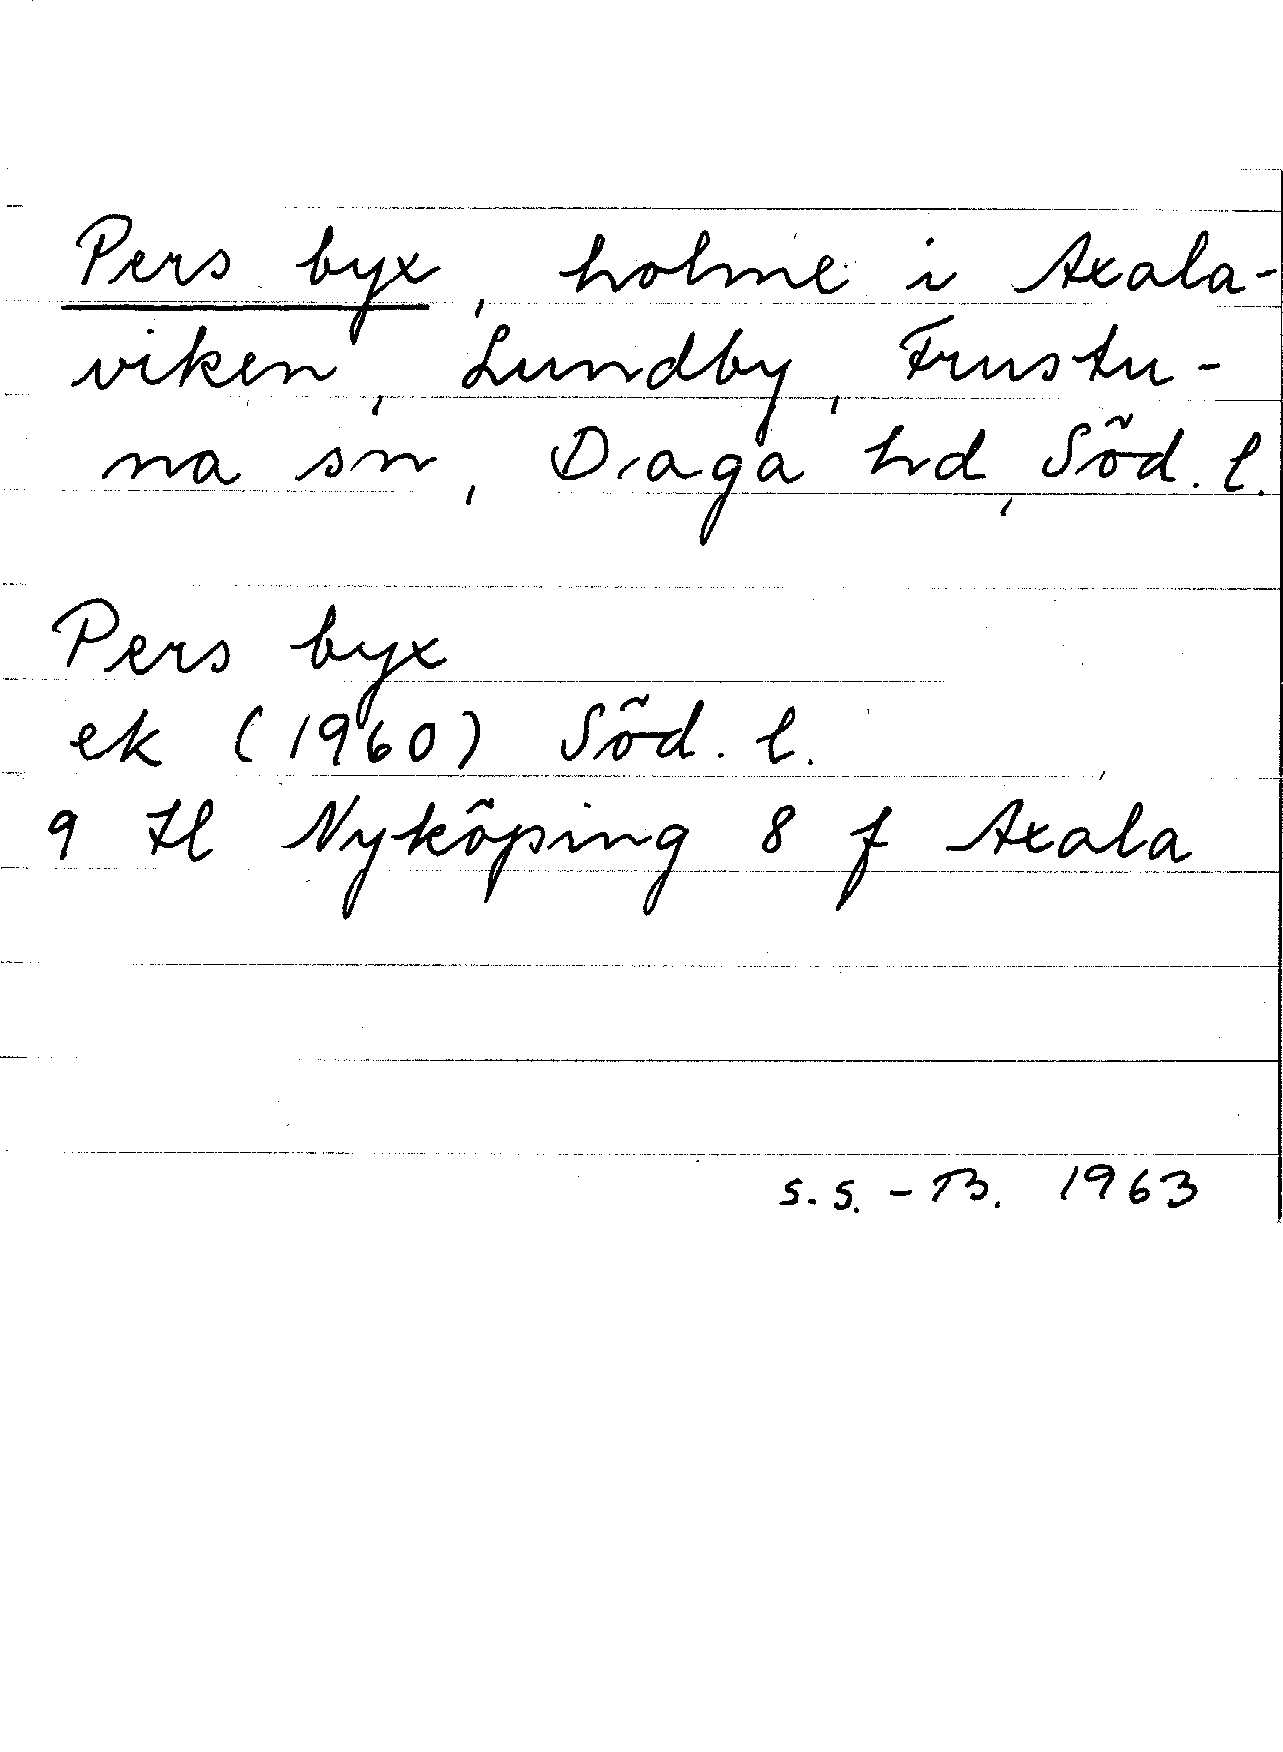 Pers byx, holme i Axala-
viken, Lundby, Frustu-
na sn, Daga hd, Söd. l.
Pers byx
ek (1960) Söd. l.
9 Hl Nyköping 8 f Axala
S. S. - B. 1963